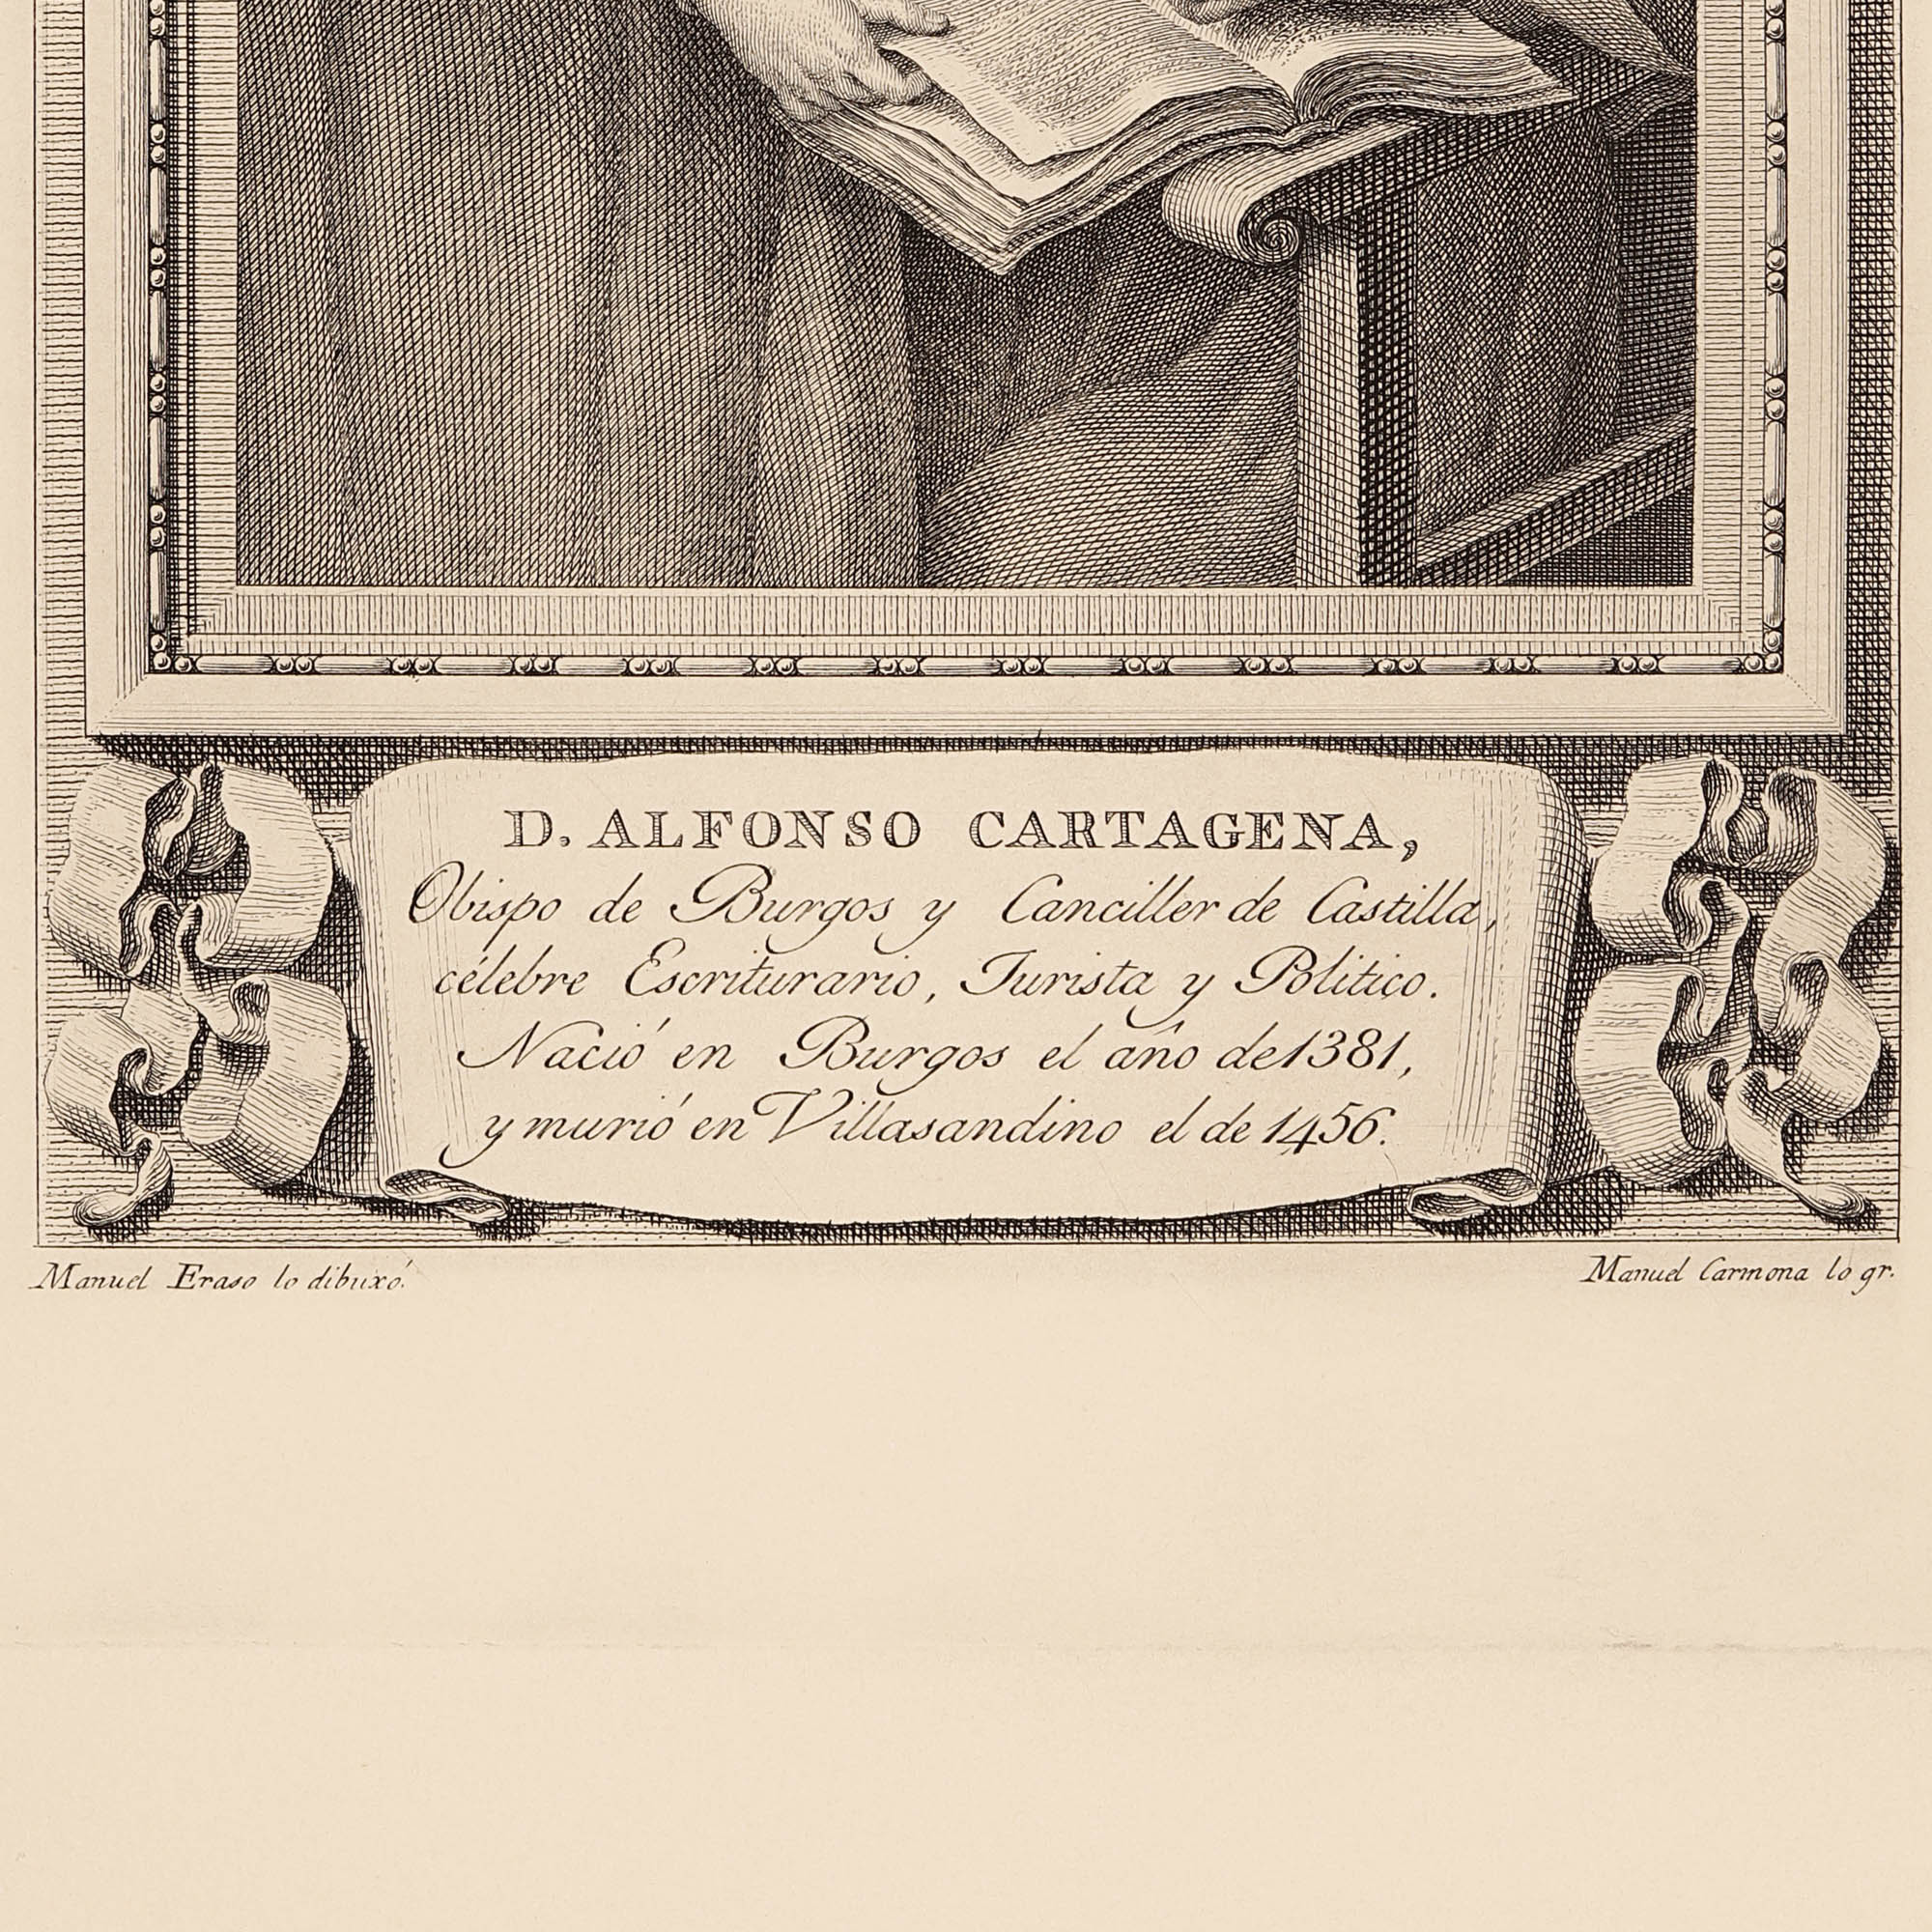 D. ALFONSO CARTAGENA,
Obispo de Burgos y Canciller de Castilla,
célebre Escriturario, Jurista y Politico.
Nació en Burgos el año de 1381,
y murió en Villasandino el de 1456.
Manuel Eraso lo dibuxó.
Manuel Carmona lo gr.